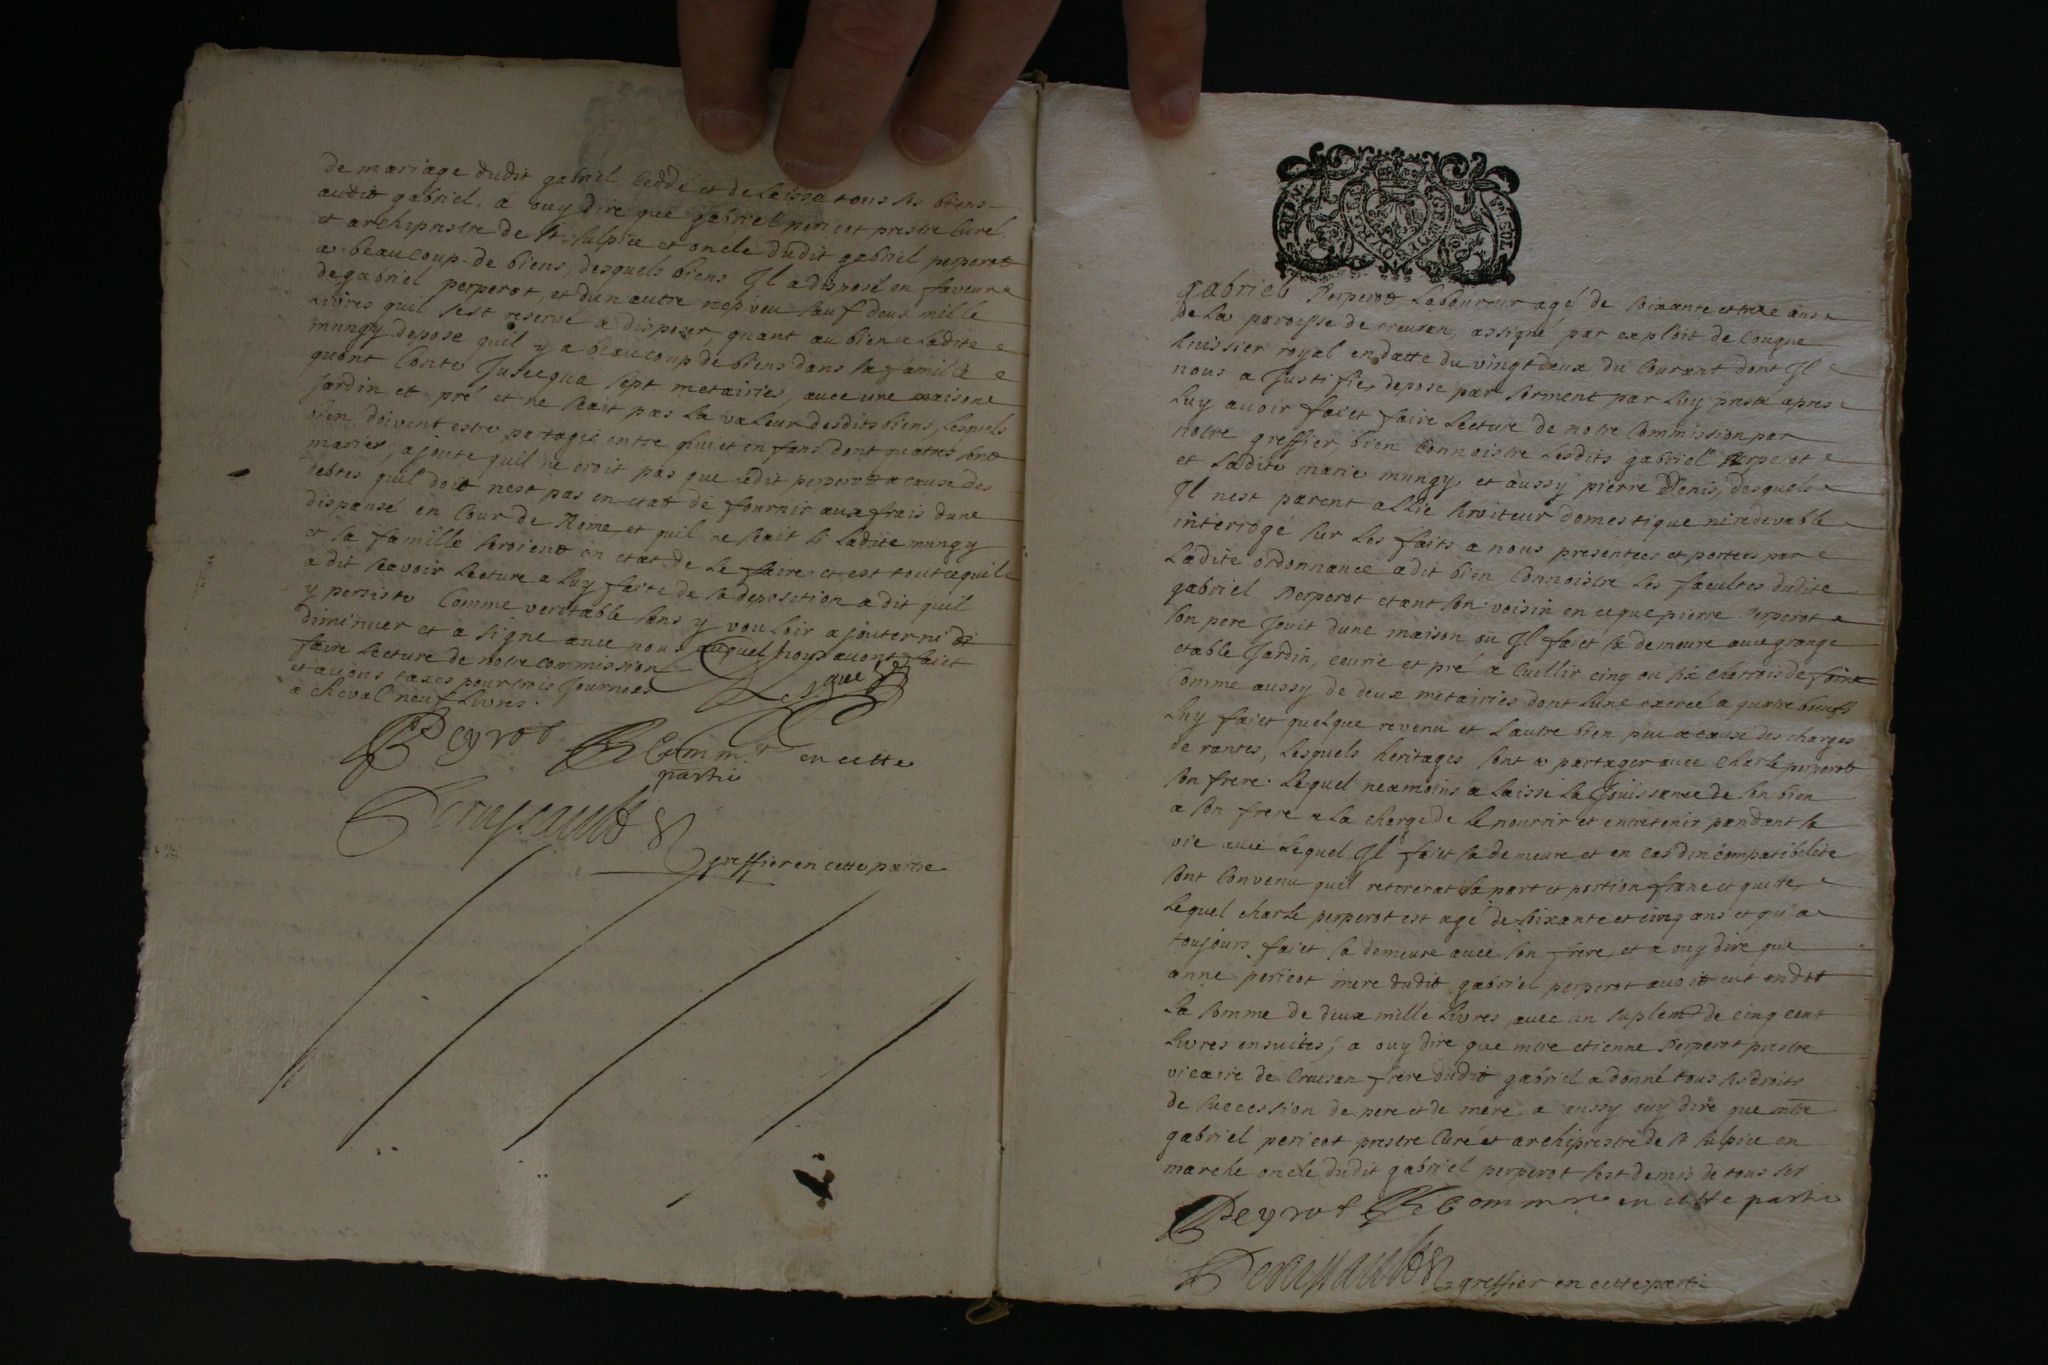 de mariage dudit gabriel ceddé et delaissa tous ses biens
audit gabriel, a ouy dire que gabriel pericot prestre curé
et archiprestre de st sulpice et oncle dudit gabriel perperot
a beaucoup de biens, desquels biens Il a disposé en faveur
de gabriel perperot, et dun autre nepveu sauf deux mille
livres quil sest reservé a disposer, quant au bien a ladite
mungy depose quil y a beaucoup de biens dans sa famille
quont conte Jusequa sept metairies, avec une maison
Jardin et pré et ne scait pas la valeur desdits biens, lesquels
bien doivent estre partagé entre huict enfans dont quatres sont
mariés, ajoute quil ne croit pas que ledit perperot a cause des
debtes quil doit nest pas en etat de fournir aux frais dune
dispanse en Cour de Rome et quil ne scait si ladite mungy
et sa famille seroient en etat de le faire et est tout ce quil
a dit scavoir lecture a luy faite de sa deposition a dit quil
y persiste comme veritable sans y vouloir ajouter ni di
diminuer et a signé avec nous auquel nous avont faict
faire lecture de notre commission
et avons taxés pour trois Journees
a cheval neuf livres.
Peyrot Comm.r en cette
partie
greffier en cette partie
gabriel Perperot laboureur agé de soixante et treze ans
de la paroisse de creusan, assigné par exploit de Couque
huissier royal en datte du vingt deux du courant dont Il
nous a Justifié, depose par serment par luy presté apres
luy avoir faict faire lecture de notre Commission par
notre greffier, bien connoistre lesdits gabriel Perperot
et ladite marie mungy, et aussy pierre Denis, desquels
Il nest parent allié serviteur domestique ni redevable
interrogé sur les faits a nous presentees et portees par
ladite ordonnance a dit bien connoistre les facultes dudit
gabriel Perperot etant son voisin en ce que pierre Perperot
son pere Jouit dune maison ou Il faict sa demeure avec grange
etable Jardin, ecurie et pré a cuillir cinq ou six charrois de foint
Comme aussy de deux metairies dont lune exercé a quatre bœufs
luy faict quelque revenu et lautre bien peu a cause des charges
de rantes, lesquels heritages sont a partager avec charle perperot
son frere lequel neamoins a laissé la Jouissance de son bien
a son frere a la charge de le nourrir et entretenir pandent sa
vie avec lequel Il faict sa demeure et en cas dincompatibilite
sont convenu quil retirerat sa part et portion franc et quitte,
lequel charle perperot est agé de soixante et cinq ans et qu'a
toujours faict sa demeure avec son frere, et a ouy dire que
anne pericot mere dudit gabriel perperot avoit eut en dot
la somme de deux mille livres avec un suplemt de cinq cent
livres ensuites, a ouy dire que mtre etienne Perperot prestre
vicaire de Creusan frere dudit gabriel a donné tous ses droits
de succession de pere et de mere, a aussy ouy dire que mtre
gabriel pericot prestre Curé et archiprestre de st sulpice en
marche oncle dudit gabriel perperot sest demis de tous ses
Peyrot Commre en cette partie
greffier en cette partie